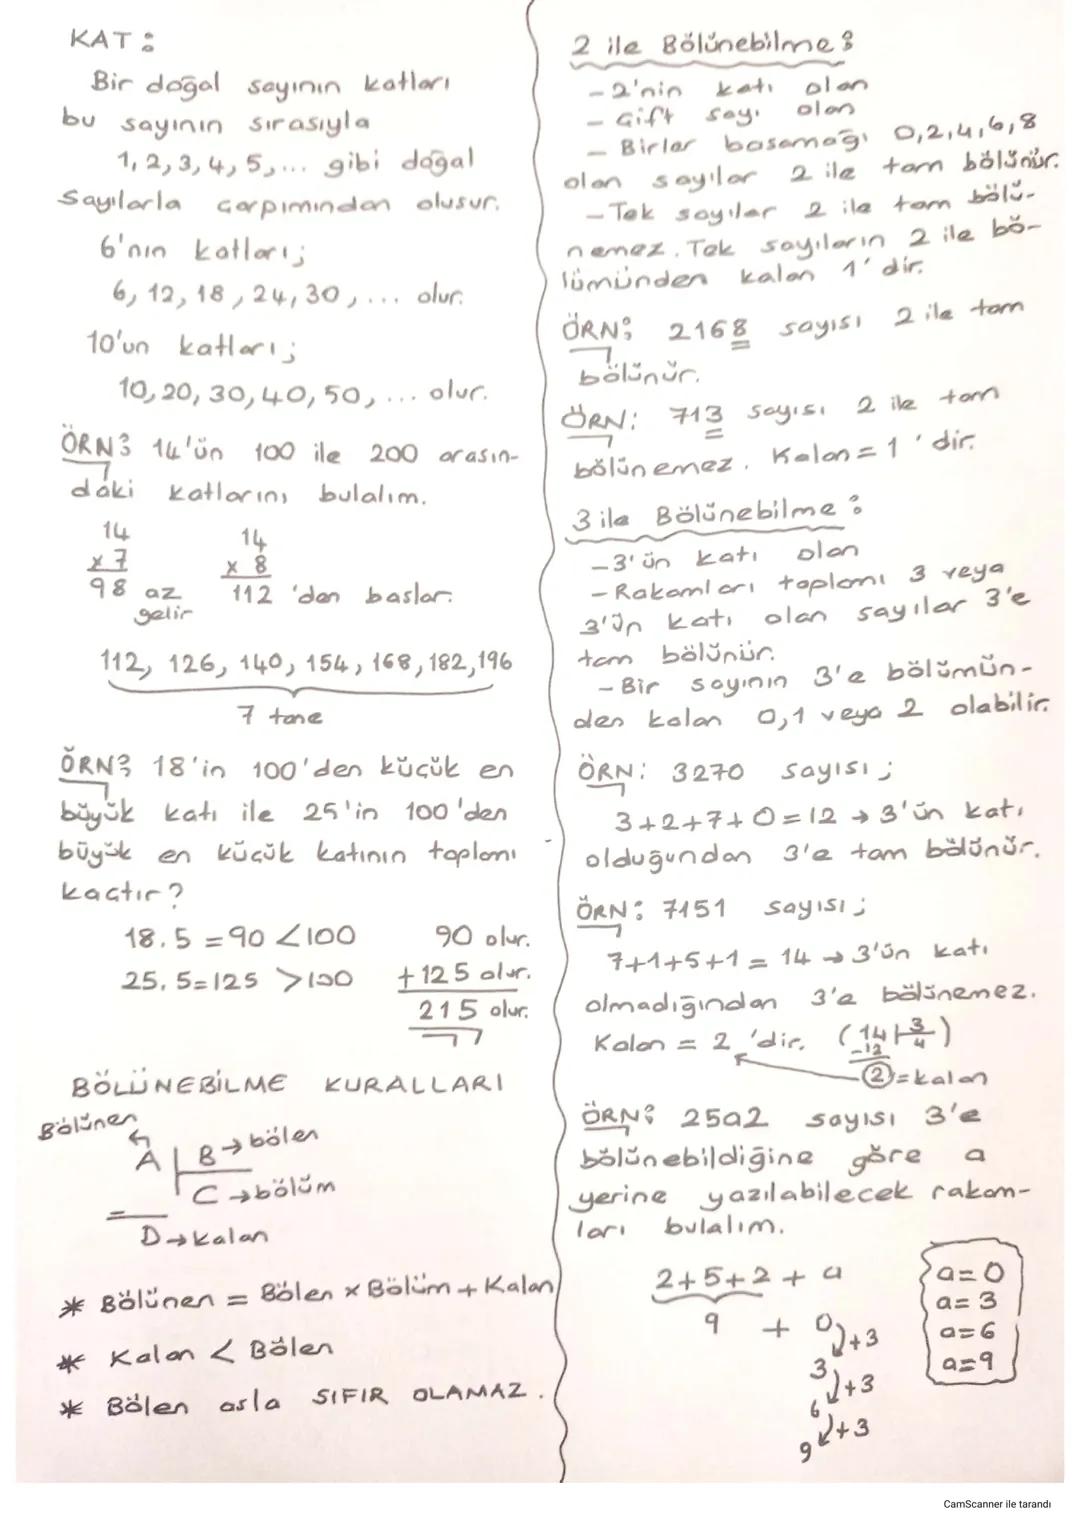 KAT :
Bir doğal sayının katları
bu sayının sırasıyla
1, 2, 3, 4, 5, ... gibi doğal
Sayılarla çarpımından oluşur.
6'nın katları;
6, 12, 18, 24, 30, ... olur.
10'un katları;
10, 20, 30, 40, 50, ... olur.
ÖRN: 14'ün 100 ile 200 arasın-
daki katlarını bulalım.
14
x 7
98 az
gelir
14
x 8
112 'den başlar.
112, 126, 140, 154, 168, 182, 196
7 tane
ÖRN: 18'in 100'den küçük en
büyük katı ile 25'in 100'den
büyük en küçük katının toplamı
kaçtır?
18.5 = 90 < 100
25.5 = 125 > 100
90 olur.
+ 125 olur.
215 olur.
BÖLÜNEBİLME KURALLARI
Bölünen
A | B → bölen
C → bölüm
D → kalan
* Bölünen = Bölen x Bölüm + Kalan
* Kalan < Bölen
* Bölen asla SIFIR OLAMAZ.
2 ile Bölünebilme:
- 2'nin katı olan
- Çift sayı olan
- Birler basamağı 0,2,4,6,8
olan sayılar 2 ile tam bölünür.
- Tek sayılar 2 ile tam bölü-
nemez. Tek sayıların 2 ile bö-
lümünden kalan 1'dir.
ÖRN: 2168 sayısı 2 ile tam
bölünür.
ÖRN: 713 sayısı 2 ile tam
bölünemez. Kalan = 1'dir.
3 ile Bölünebilme :
- 3'ün katı olan
- Rakamları toplamı 3 veya
3'ün katı olan sayılar 3'e
tam bölünür.
- Bir sayının 3'e bölümün-
den kalan 0,1 veya 2 olabilir.
ÖRN: 3270 sayısı;
3+2+7+0=12 → 3'ün katı
olduğundan 3'e tam bölünür.
ÖRN: 7151 sayısı;
7+1+5+1 = 14 → 3'ün katı
olmadığından 3'e bölünemez.
Kalan = 2 'dir. (14 | 3
-12 4)
2 = kalan
ÖRN: 25a2 sayısı 3'e
bölünebildiğine göre a
yerine yazılabilecek rakam-
ları bulalım.
2+5+2 + a
9 + 0 +3
3 +3
6 +3
9
a=0
a=3
a=6
a=9
CamScanner ile tarandı